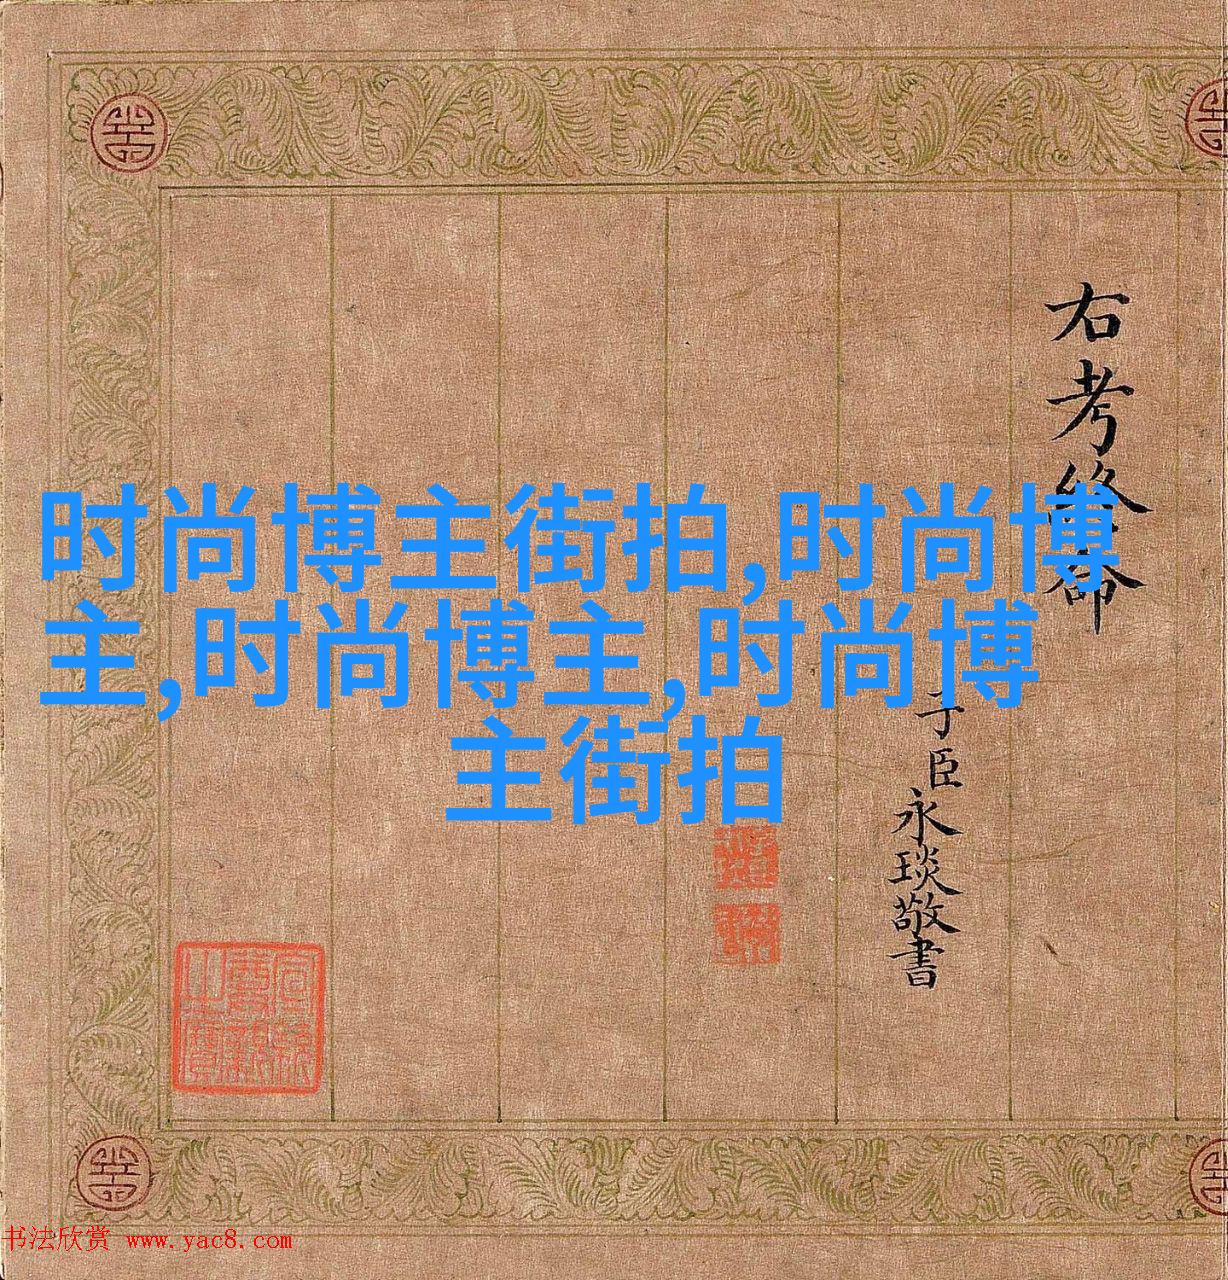 时尚博主街拍,时尚博
主,时尚博主,时尚博
主街拍
右考終命
子臣永琰敬書
书法欣赏 www.yac8.com